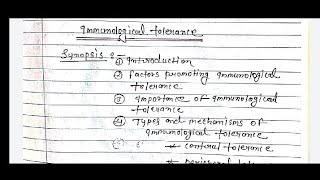 Immunological tolerance
Synopsis :-
① Introduction
② Factors promoting immunological
tolerance
③ Importance of immunological
tolerance
④ Types and mechanisms of
immunological tolerance
* Central tolerance
* peripheral